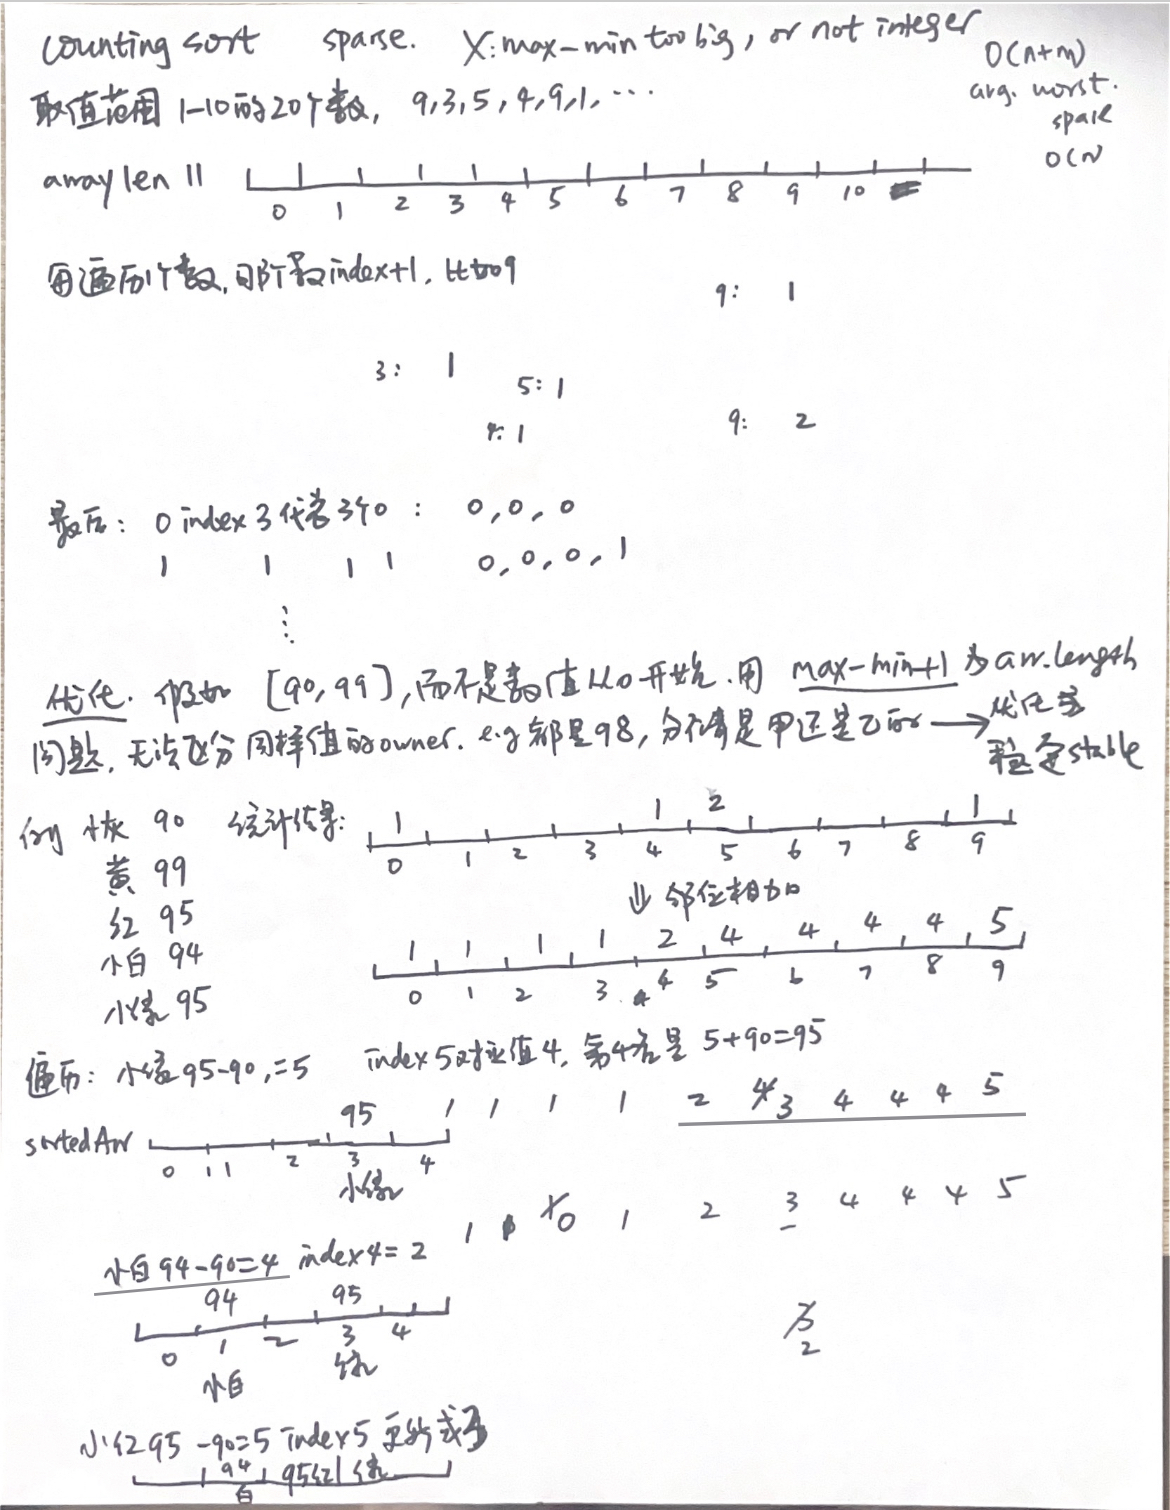 counting sort  sparse.  X: max-min too big, or not integer
O(n+m)
avg. worst.
O(N)
取值范围 1-10的20个数, 9,3,5,4,9,1,...
array len 11
0 1 2 3 4 5 6 7 8 9 10
遍历个数, 那个数index+1. 比如9
9: 1
3: 1
5: 1
4: 1
9: 2
最后: 0 index 3 代表3个0 : 0,0,0
1 1 1 1 0,0,0,1
⋮
优化. 假如 [90,99], 而不是数值从0开始. 用 max-min+1 为 arr.length
问题, 无法区分同样值的owner. e.g 都是98, 分不清是甲还是乙的 → 优化至
稳定stable
例 小灰 90 统计结果: 1 1 2 1
0 1 2 3 4 5 6 7 8 9
黄 99
⇓ 邻位相加
红 95
1 1 1 1 2 4 4 4 4 5
小白 94
0 1 2 3 4 5 6 7 8 9
小绿 95
遍历: 小绿95-90,=5 index 5对应值4, 第4名是 5+90=95
1 1 1 1 2 4 3 4 4 4 5
sortedArr 95
0 1 2 3 4
小绿
1 0 1 2 3 4 4 4 5
小白 94-90=4 index4=2
94 95
0 1 2 3 4
小白 绿
3
2
小红95-90=5 index5 更新成了
94 95红 绿
白